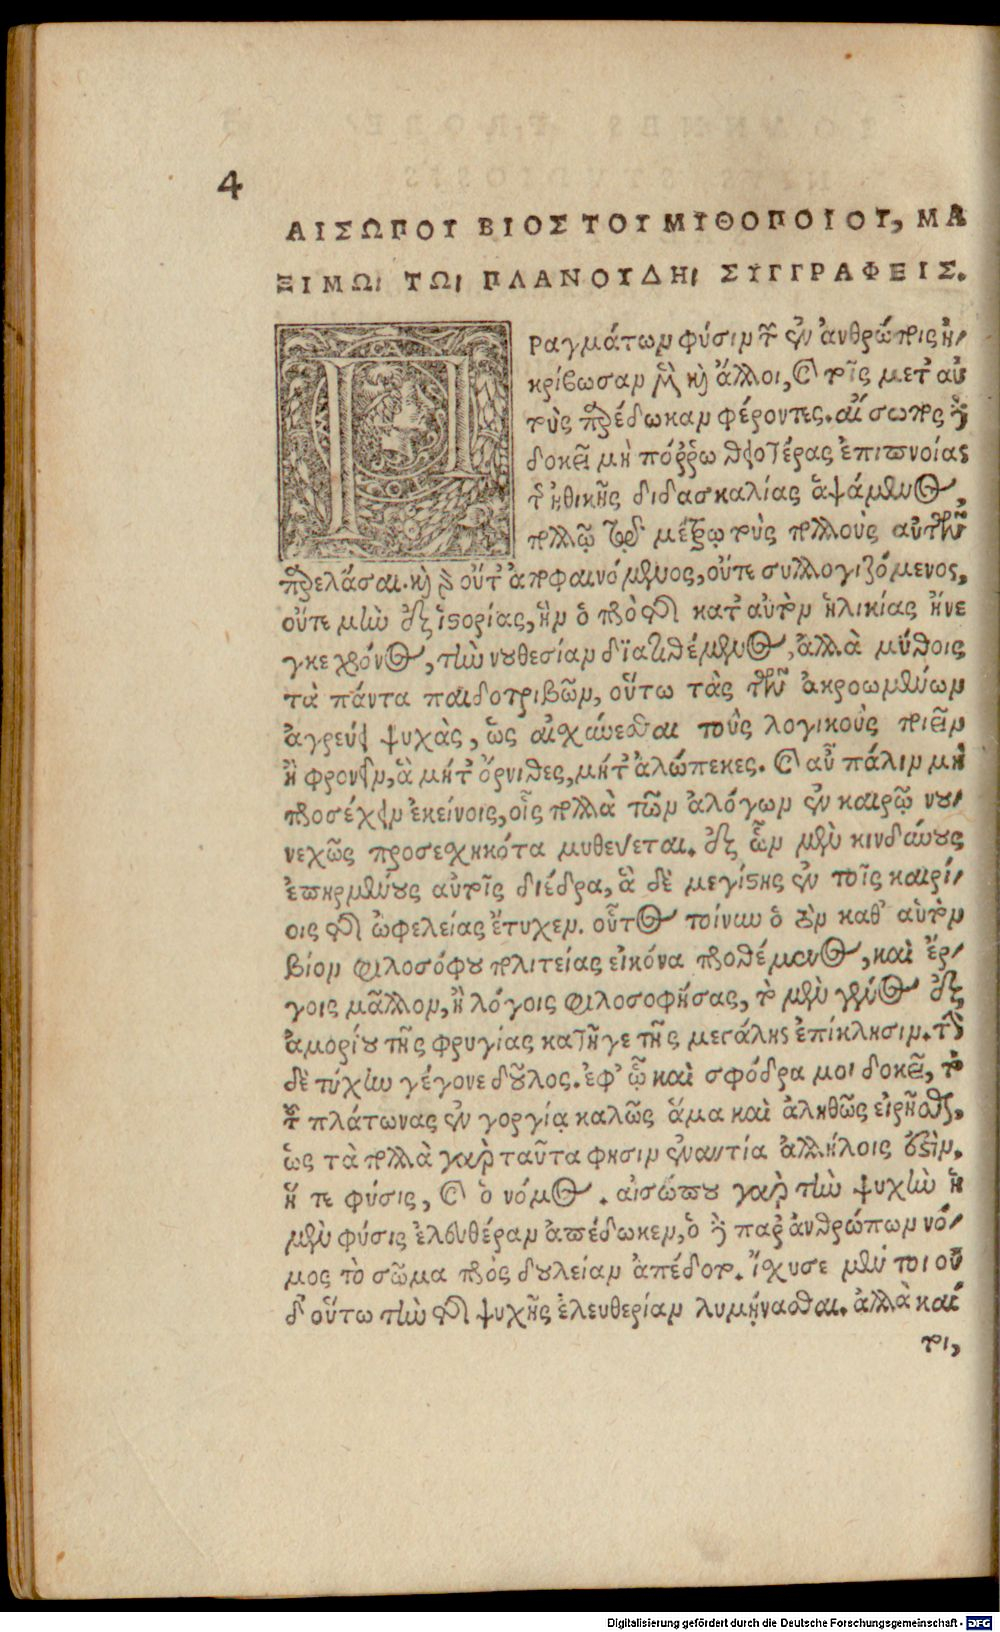 4
ΑΙΣΩΠΟΥ ΒΙΟΣ ΤΟΥ ΜΥΘΟΠΟΙΟΥ, ΜΑ
ΞΙΜΩΙ ΤΩΙ ΠΛΑΝΟΥΔΗΙ ΣΥΓΓΡΑΦΕΙΣ.
Πραγμάτων φύσιν τ ἐν ἀνθρώποις ἠ-
κρίβωσαν μὲν καὶ ἄλλοι, καὶ τοῖς μετ' αὐ
τοὺς παρέδωκαν φέροντες. αἴσωπος δὲ
δοκεῖ μὴ πόῤῥω θειοτέρας ἐπιπνοίας
τ ἠθικῆς διδασκαλίας ἁψάμενος,
πολλῷ τῷ μέτρῳ τοὺς πολλοὺς αὐτῶν
παρελάσαι. καὶ γὰρ οὔτ' ἀποφαινόμενος, οὔτε συλλογιζόμενος,
οὔτε μὴν ἐξ ἱστορίας, ἣν ὁ πρὸ τῆς κατ' αὐτὸν ἡλικίας ἤνε
γκε χρόνος, τὴν νουθεσίαν διατιθέμενος, ἀλλὰ μύθοις
τὰ πάντα παιδοτριβῶν, οὕτω τὰς τῶν ἀκροωμένων
ἀγρεύει ψυχὰς, ὡς αἰσχύνεσθαι τοὺς λογικοὺς ποιεῖν
ἢ φρονεῖν, ἃ μήτ' ὄρνιθες, μήτ' ἀλώπεκες. καὶ αὖ πάλιν μὴ
προσέχειν ἐκείνοις, οἷς πολλὰ τῶν ἀλόγων ἐν καιρῷ νου-
νεχῶς προσεχηκότα μυθεύεται. ἐξ ὧν μὲν κινδύνους
ἐπηρμένους αὐτοῖς διέδρα, ἃ δὲ μεγίστης ἐν τοῖς καιρί-
οις τῆς ὠφελείας ἔτυχεν. οὗτος τοίνυν ὁ τὸν καθ' αὑτὸν
βίον φιλοσόφου πολιτείας εἰκόνα προθέμενος, καὶ ἔρ-
γοις μᾶλλον, ἢ λόγοις φιλοσοφήσας, τὸ μὲν γένος ἐξ
ἀμορίου τῆς φρυγίας κατῆγε τῆς μεγάλης ἐπίκλησιν. τὴν
δὲ τύχην γέγονε δοῦλος. ἐφ' ᾧ καὶ σφόδρα μοι δοκεῖ, τὸ
τ πλάτωνος ἐν γοργίᾳ καλῶς ἅμα καὶ ἀληθῶς εἰρῆσθαι,
ὡς τὰ πολλὰ γαρ ταῦτα φησιν ἐναντία ἀλλήλοις ἐστὶν.
ἥ τε φύσις, καὶ ὁ νόμος. αἰσώπου γαρ τὴν ψυχὴν ἡ
μὲν φύσις ἐλευθέραν ἀπέδωκεν, ὁ δὲ παρ' ἀνθρώπων νό-
μος τὸ σῶμα πρὸς δουλείαν ἀπέδοτο. ἴσχυσε μέν τοι οὐ
δ' οὕτω τὴν τῆς ψυχῆς ἐλευθερίαν λυμήνασθαι. ἀλλὰ καί
τοι,
Digitalisierung gefördert durch die Deutsche Forschungsgemeinschaft - DFG